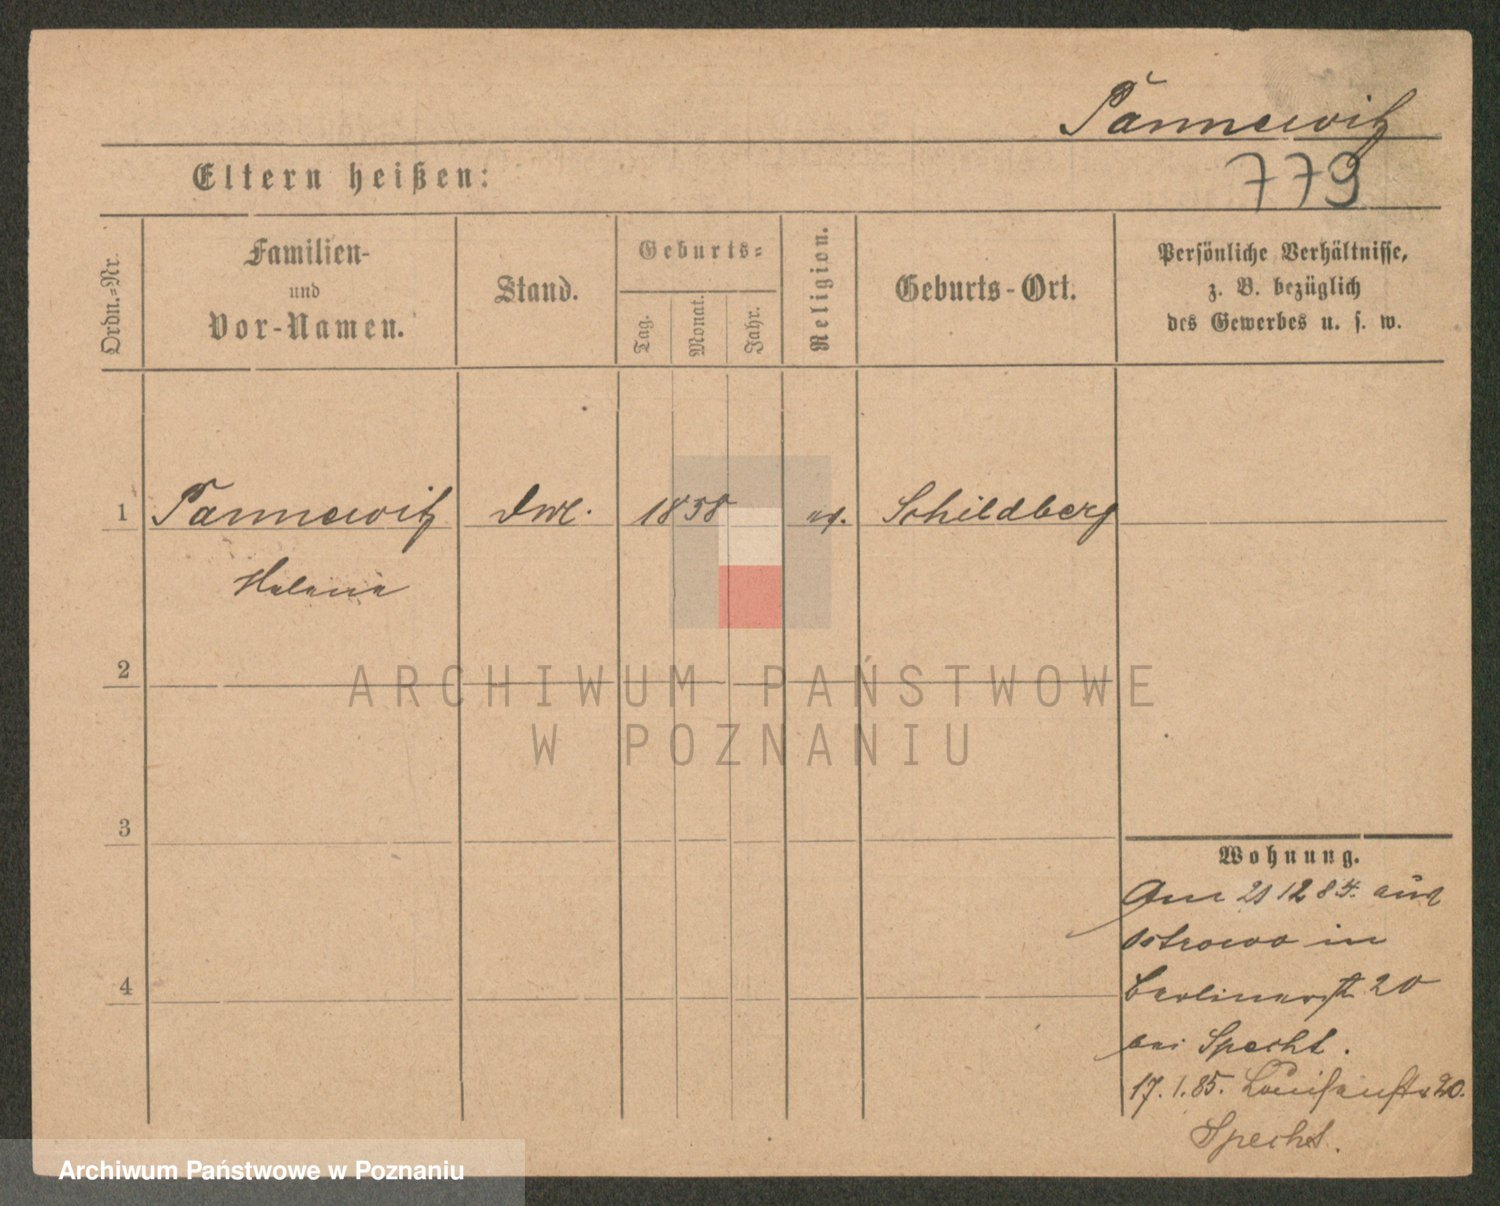 Pannewitz
Eltern heißen:
779
Ordn.-Nr.
Familien-
und
Vor-Namen.
Stand.
Geburts-
Tag.
Monat.
Jahr.
Religion.
Geburts-Ort.
Persönliche Verhältnisse,
z. B. bezüglich
des Gewerbes u. s. w.
1 Pannewitz 1858 Schildberg
Helene
2
ARCHIWUM PAŃSTWOWE
W POZNANIU
3
Wohnung.
Am 21 12 84. aus
Ostrowo in
4
Berlinerstr 20
bei Specht.
17. 1. 85. Louisenstr 20.
Specht.
Archiwum Państwowe w Poznaniu